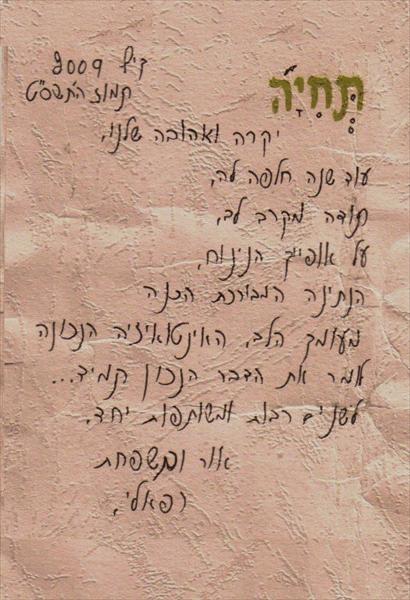 קיץ 2009
תמוז ה'תשס"ט
תְּחִיָּה
יקרה ואהובה שלנו,
עוד שנה חלפה לה,
תודה מקרב לב,
על אופייך הנינוח,
הנתינה המבורכת הכנה
מעומק הלב, האינטואיציה הנכונה
לומר את הדבר הנכון תמיד...
לשנים רבות ומשותפות יחד,
אור ומשפחת
רפאלי,